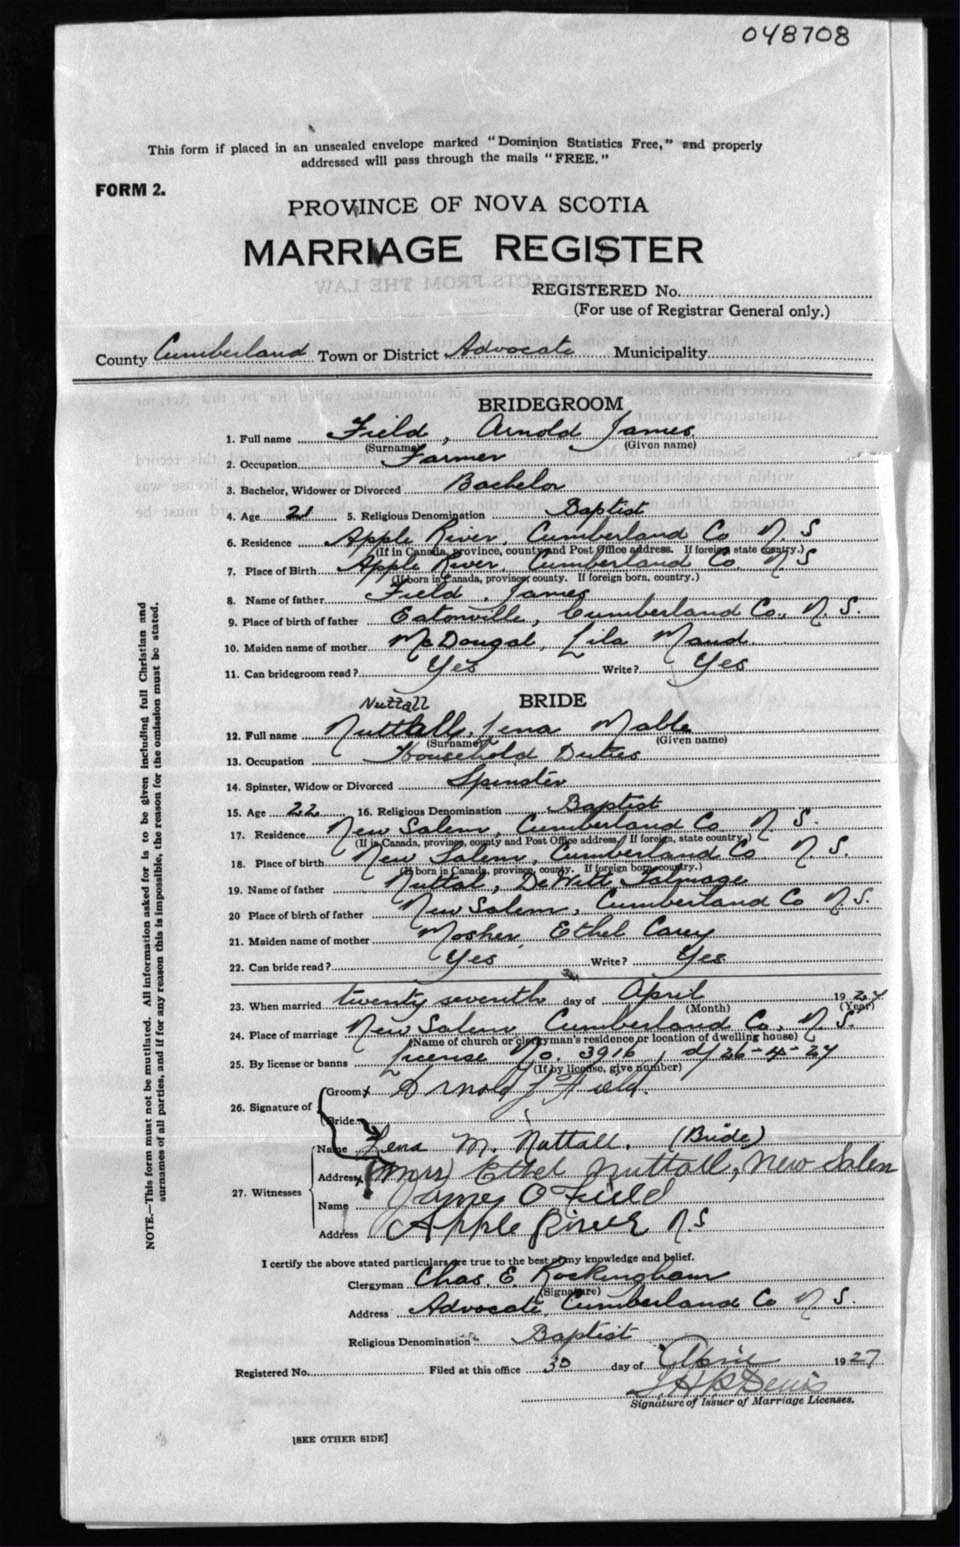 048708
This form if placed in an unsealed envelope marked "Dominion Statistics Free," and properly
addressed will pass through the mails "FREE."
FORM 2.
PROVINCE OF NOVA SCOTIA
MARRIAGE REGISTER
REGISTERED No.
(For use of Registrar General only.)
County Cumberland Town or District Advocate Municipality
BRIDEGROOM
1. Full name Field, Arnold James
(Surname) (Given name)
2. Occupation Farmer
3. Bachelor, Widower or Divorced Bachelor
4. Age 21 5. Religious Denomination Baptist
6. Residence Apple River, Cumberland Co N. S
(If in Canada, province, county and Post Office address. If foreign state country.)
7. Place of Birth Apple River, Cumberland Co. N S
(If born in Canada, province, county. If foreign born, country.)
8. Name of father Field, James
9. Place of birth of father Eatonville, Cumberland Co., N. S.
10. Maiden name of mother McDougal, Lila Maud
11. Can bridegroom read? Yes Write? Yes
BRIDE
Nuttall
12. Full name Lena Mable
(Surname) (Given name)
13. Occupation Household Duties
14. Spinster, Widow or Divorced Spinster
15. Age 22 16. Religious Denomination Baptist
17. Residence New Salem, Cumberland Co N. S.
(If in Canada, province, county and Post Office address. If foreign, state country.)
18. Place of birth New Salem, Cumberland Co N. S.
(If born in Canada, province, county. If foreign born, country.)
19. Name of father Nuttal, DeWitt Talmage
20 Place of birth of father New Salem, Cumberland Co N.S.
21. Maiden name of mother Mosher, Ethel Carey
22. Can bride read? Yes Write? Yes
23. When married twenty seventh day of April 1927
(Month) (Year)
24. Place of marriage New Salem Cumberland Co, N. S.
(Name of church or clergyman's residence or location of dwelling house)
25. By license or banns License No. 3916, d/ 26-4-27
(If by license, give number)
26. Signature of Groom x Arnold J Field.
Bride
Name Lena M. Nuttall. (Bride)
27. Witnesses Address x (Mrs) Ethel Nuttall, New Salem
Name James O Field
Address Apple River N.S
I certify the above stated particulars are true to the best of my knowledge and belief.
Clergyman Chas. E. Rockingham
(Signature)
Address Advocate, Cumberland Co N. S.
Religious Denomination Baptist
Registered No. Filed at this office 30 day of April 1927
Signature of Issuer of Marriage Licenses.
[SEE OTHER SIDE]
NOTE.—This form must not be mutilated. All information asked for is to be given including full Christian and
surnames of all parties, and if for any reason this is impossible, the reason for the omission must be stated.